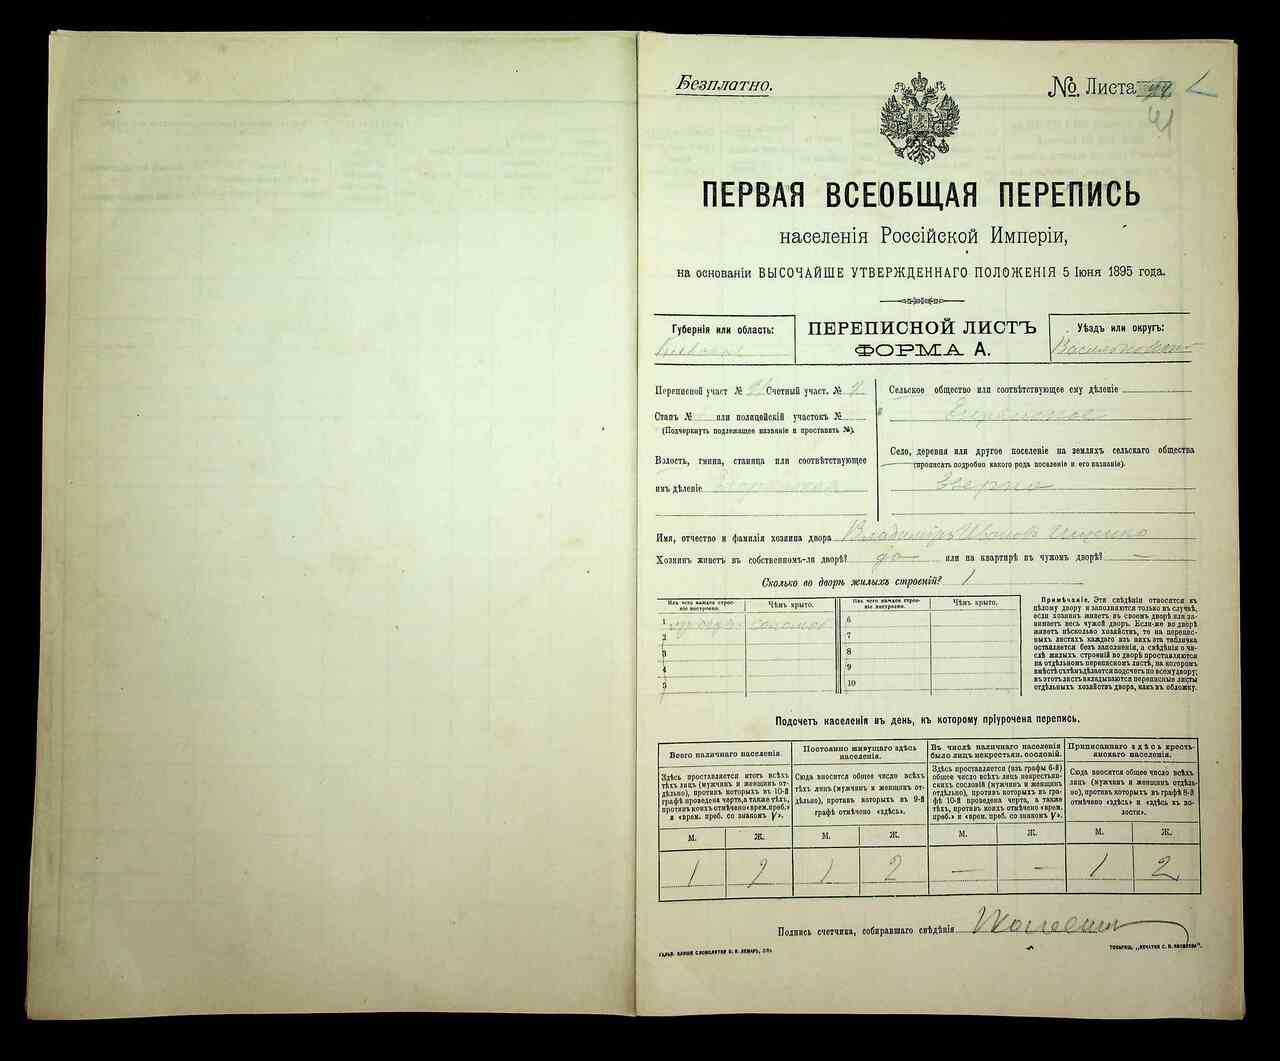 Безплатно.
№. Листа
41
ПЕРВАЯ ВСЕОБЩАЯ ПЕРЕПИСЬ
населенія Россійской Имперіи,
на основаніи ВЫСОЧАЙШЕ УТВЕРЖДЕННАГО ПОЛОЖЕНІЯ 5 Іюня 1895 года.
Губернія или область:
ПЕРЕПИСНОЙ ЛИСТЪ
ФОРМА А.
Уѣздъ или округъ:
Васильковскій
Переписной участ № Счетный участ. №
Станъ № или полицейскій участокъ №
(Подчеркнуть подлежащее названіе и проставить №).
Волость, гмина, станица или соотвѣтствующее
имъ дѣленіе
Сельское общество или соотвѣтствующее ему дѣленіе
Село, деревня или другое поселеніе на земляхъ сельскаго общества
(прописать подробно какого рода поселеніе и его названіе).
Имя, отчество и фамилія хозяина двора Владиміръ Ивановъ
Хозяинъ живетъ въ собственномъ-ли дворѣ? да или на квартирѣ въ чужомъ дворѣ? —
Сколько во дворѣ жилыхъ строеній? 1
Изъ чего каждое строеніе построено.
Чѣмъ крыто.
Изъ чего каждое строеніе построено.
Чѣмъ крыто.
1 соломой 6
2 7
3 8
4 9
5 10
Примѣчаніе. Эти свѣдѣнія относятся къ
цѣлому двору и заполняются только въ случаѣ,
если хозяинъ живетъ въ своемъ дворѣ или за-
нимаетъ весь чужой дворъ. Если-же во дворѣ
живетъ нѣсколько хозяйствъ, то на перепис-
ныхъ листахъ каждаго изъ нихъ эта табличка
оставляется безъ заполненія, а свѣдѣнія о чи-
слѣ жилыхъ строеній во дворѣ проставляются
на отдѣльномъ переписномъ листѣ, на которомъ
вмѣстѣ съ тѣмъ дѣлается подсчетъ по всему двору;
въ этотъ листъ вкладываются переписные листы
отдѣльныхъ хозяйствъ двора, какъ въ обложку.
Подсчетъ населенія въ день, къ которому пріурочена перепись.
Всего наличнаго населенія.
Здѣсь проставляется итогъ всѣхъ
тѣхъ лицъ (мужчинъ и женщинъ от-
дѣльно), противъ которыхъ въ 10-й
графѣ проведена черта, а также тѣхъ,
противъ коихъ отмѣчено «врем. преб.»
и «врем. преб. со знакомъ V».
Постоянно живущаго здѣсь
населенія.
Сюда вносится общее число всѣхъ
тѣхъ лицъ (мужчинъ и женщинъ от-
дѣльно), противъ которыхъ въ 9-й
графѣ отмѣчено «здѣсь».
Въ числѣ наличнаго населенія
было лицъ некрестьян. сословій.
Здѣсь проставляется (изъ графы 6-й)
общее число всѣхъ лицъ некрестьян-
скихъ сословій (мужчинъ и женщинъ
отдѣльно), противъ которыхъ въ гра-
фѣ 10-й проведена черта, а также
тѣхъ, противъ коихъ отмѣчено «врем.
преб.» и «врем. преб. со знакомъ V».
Приписаннаго здѣсь кресть-
янскаго населенія.
Сюда вносится общее число всѣхъ
лицъ (мужчинъ и женщинъ отдѣль-
но), противъ которыхъ въ графѣ 8-й
отмѣчено «здѣсь» и «здѣсь къ во-
лости».
М. Ж. М. Ж. М. Ж. М. Ж.
1 2 1 2 — — 1 2
Подпись счетчика, собиравшаго свѣдѣнія